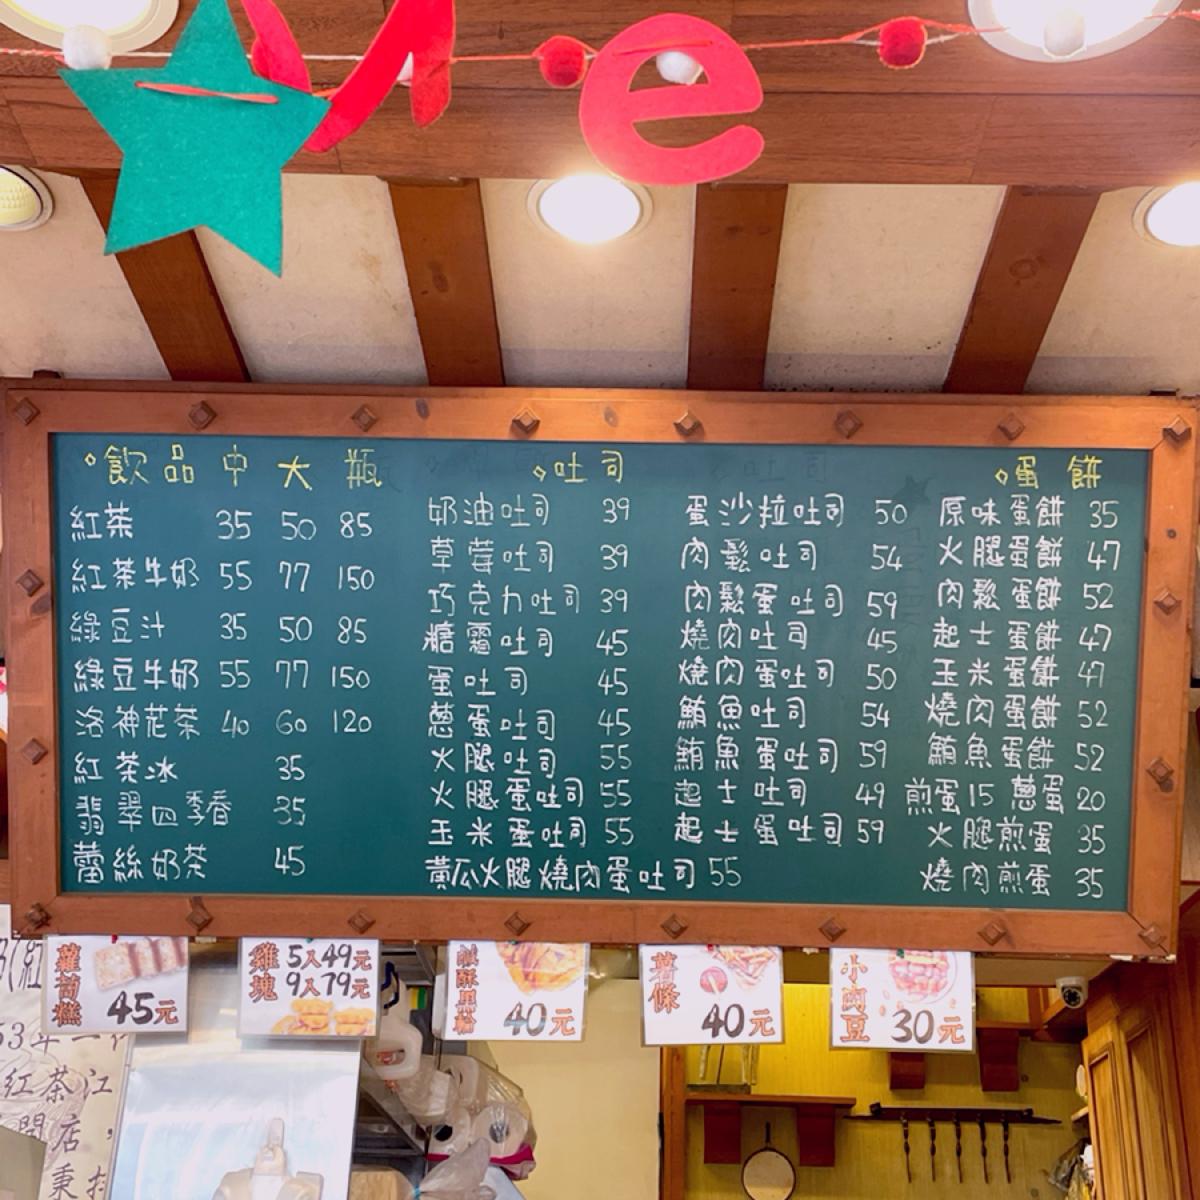 e
飲品 中 大 瓶
紅茶 35 50 85
紅茶牛奶 55 77 150
綠豆汁 35 50 85
綠豆牛奶 55 77 150
洛神花茶 40 60 120
紅茶冰 35
翡翠四季春 35
蕾絲奶茶 45
吐司
奶油吐司 39
草莓吐司 39
巧克力吐司 39
糖霜吐司 45
蛋吐司 45
蔥蛋吐司 45
火腿吐司 55
火腿蛋吐司 55
玉米蛋吐司 55
黃瓜火腿燒肉蛋吐司 55
蛋沙拉吐司 50
肉鬆吐司 54
肉鬆蛋吐司 59
燒肉吐司 45
燒肉蛋吐司 50
鮪魚吐司 54
鮪魚蛋吐司 59
起士吐司 49
起士蛋吐司 59
蛋餅
原味蛋餅 35
火腿蛋餅 47
肉鬆蛋餅 52
起士蛋餅 47
玉米蛋餅 47
燒肉蛋餅 52
鮪魚蛋餅 52
煎蛋15 蔥蛋20
火腿煎蛋 35
燒肉煎蛋 35
蘿蔔糕 45元
雞塊 5入49元
9入79元
鹹酥黑輪 40元
薯條 40元
小肉豆 30元
紅
53年
紅茶江
開店，
秉持